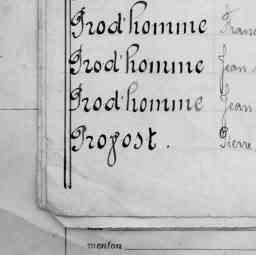 Prod'homme Franc
Prod'homme Jean
Prod'homme Jean
Provost. Pierre
menton